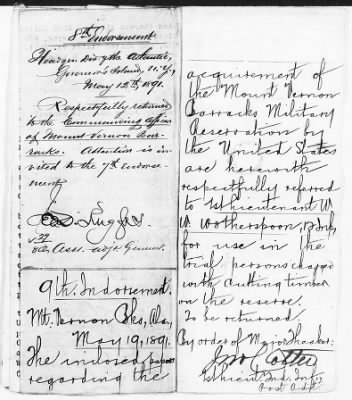 8th Endorsement
Headqrs Div of the Atlantic,
Governor's Island, N.Y.,
May 12th, 1891.
Respectfully returned
to the Commanding Officer
of Mount Vernon Bar-
racks. Attention is in-
vited to the 7th endorse-
ment.
Ruggles
Asst. Adjt General.
9th. Indorsement.
Mt. Vernon Bks, Ala.,
May 19, 1891.
The inclosed papers
regarding the
acquirement of
the Mount Vernon
Barracks Military
Reservation by
the United States
are herewith
respectfully referred
to 1st Lieutenant W.
W. Wotherspoon, 12 Inf.
for use in the
trial persons charged
with cutting timber
on the reserve.
To be returned.
By order of Major Thacker:
Jno Cotter
1st Lieut. 12th Inf.
Post Adjt.